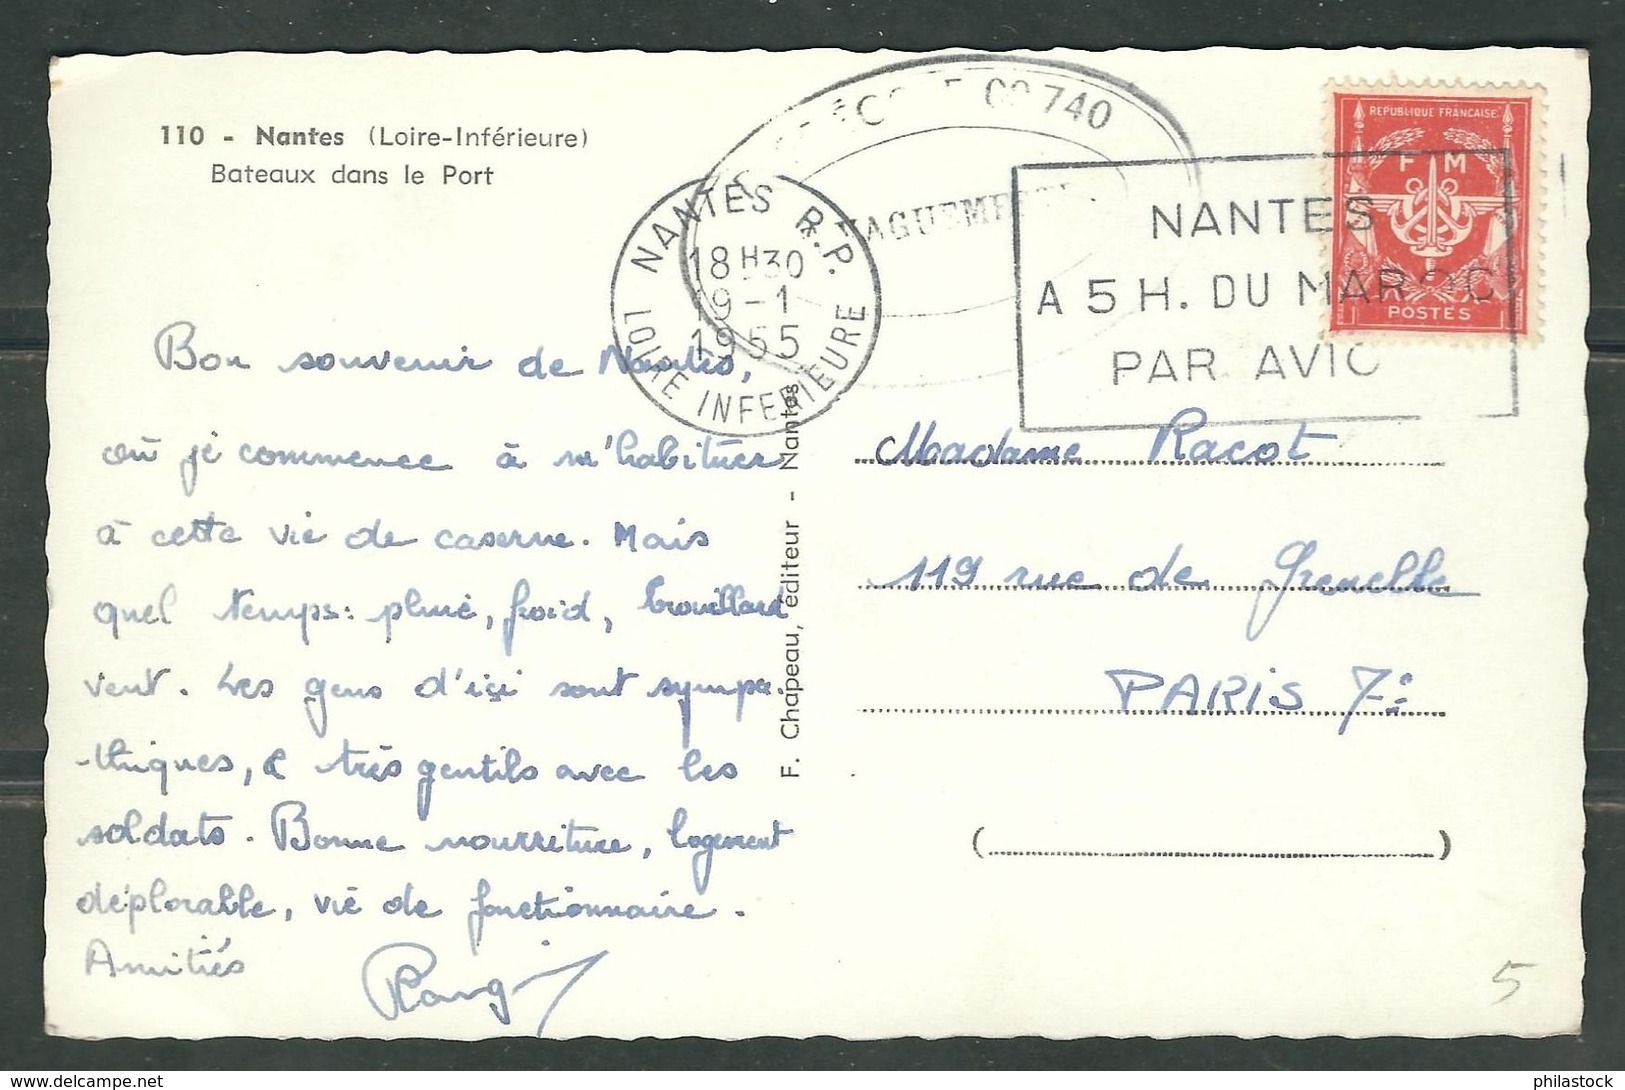 110 - Nantes (Loire-Inférieure)
Bateaux dans le Port
740
VAGUEMES
NANTES R.P.
18 H 30
19 - 1
1955
LOIRE INFERIEURE
NANTES
A 5 H. DU MAROC
PAR AVIO
REPUBLIQUE FRANCAISE
F M
POSTES
Bon souvenir de Nantes,
où je commence à m'habituer
à cette vie de caserne. Mais
quel temps: pluie, froid, brouillard
vent. Les gens d'ici sont sympa-
thiques, & très gentils avec les
soldats. Bonne nourriture, logement
déplorable, vie de fonctionnaire.
Amitiés
F. Chapeau, éditeur - Nantes
Madame Racot
119 rue de Grenelle
PARIS 7e
5
philastock
https://www.delcampe.net/